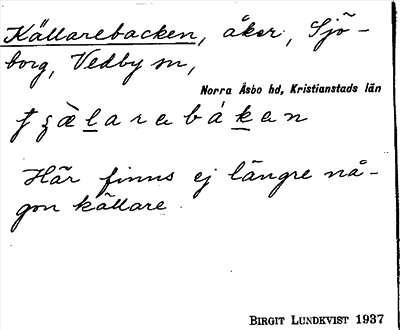 Källarebacken, åker, Sjö-
borg, Vedby sn,
Norra Åsbo hd, Kristianstads län
Här finns ej längre nå-
gon källare.
BIRGIT LUNDKVIST 1937